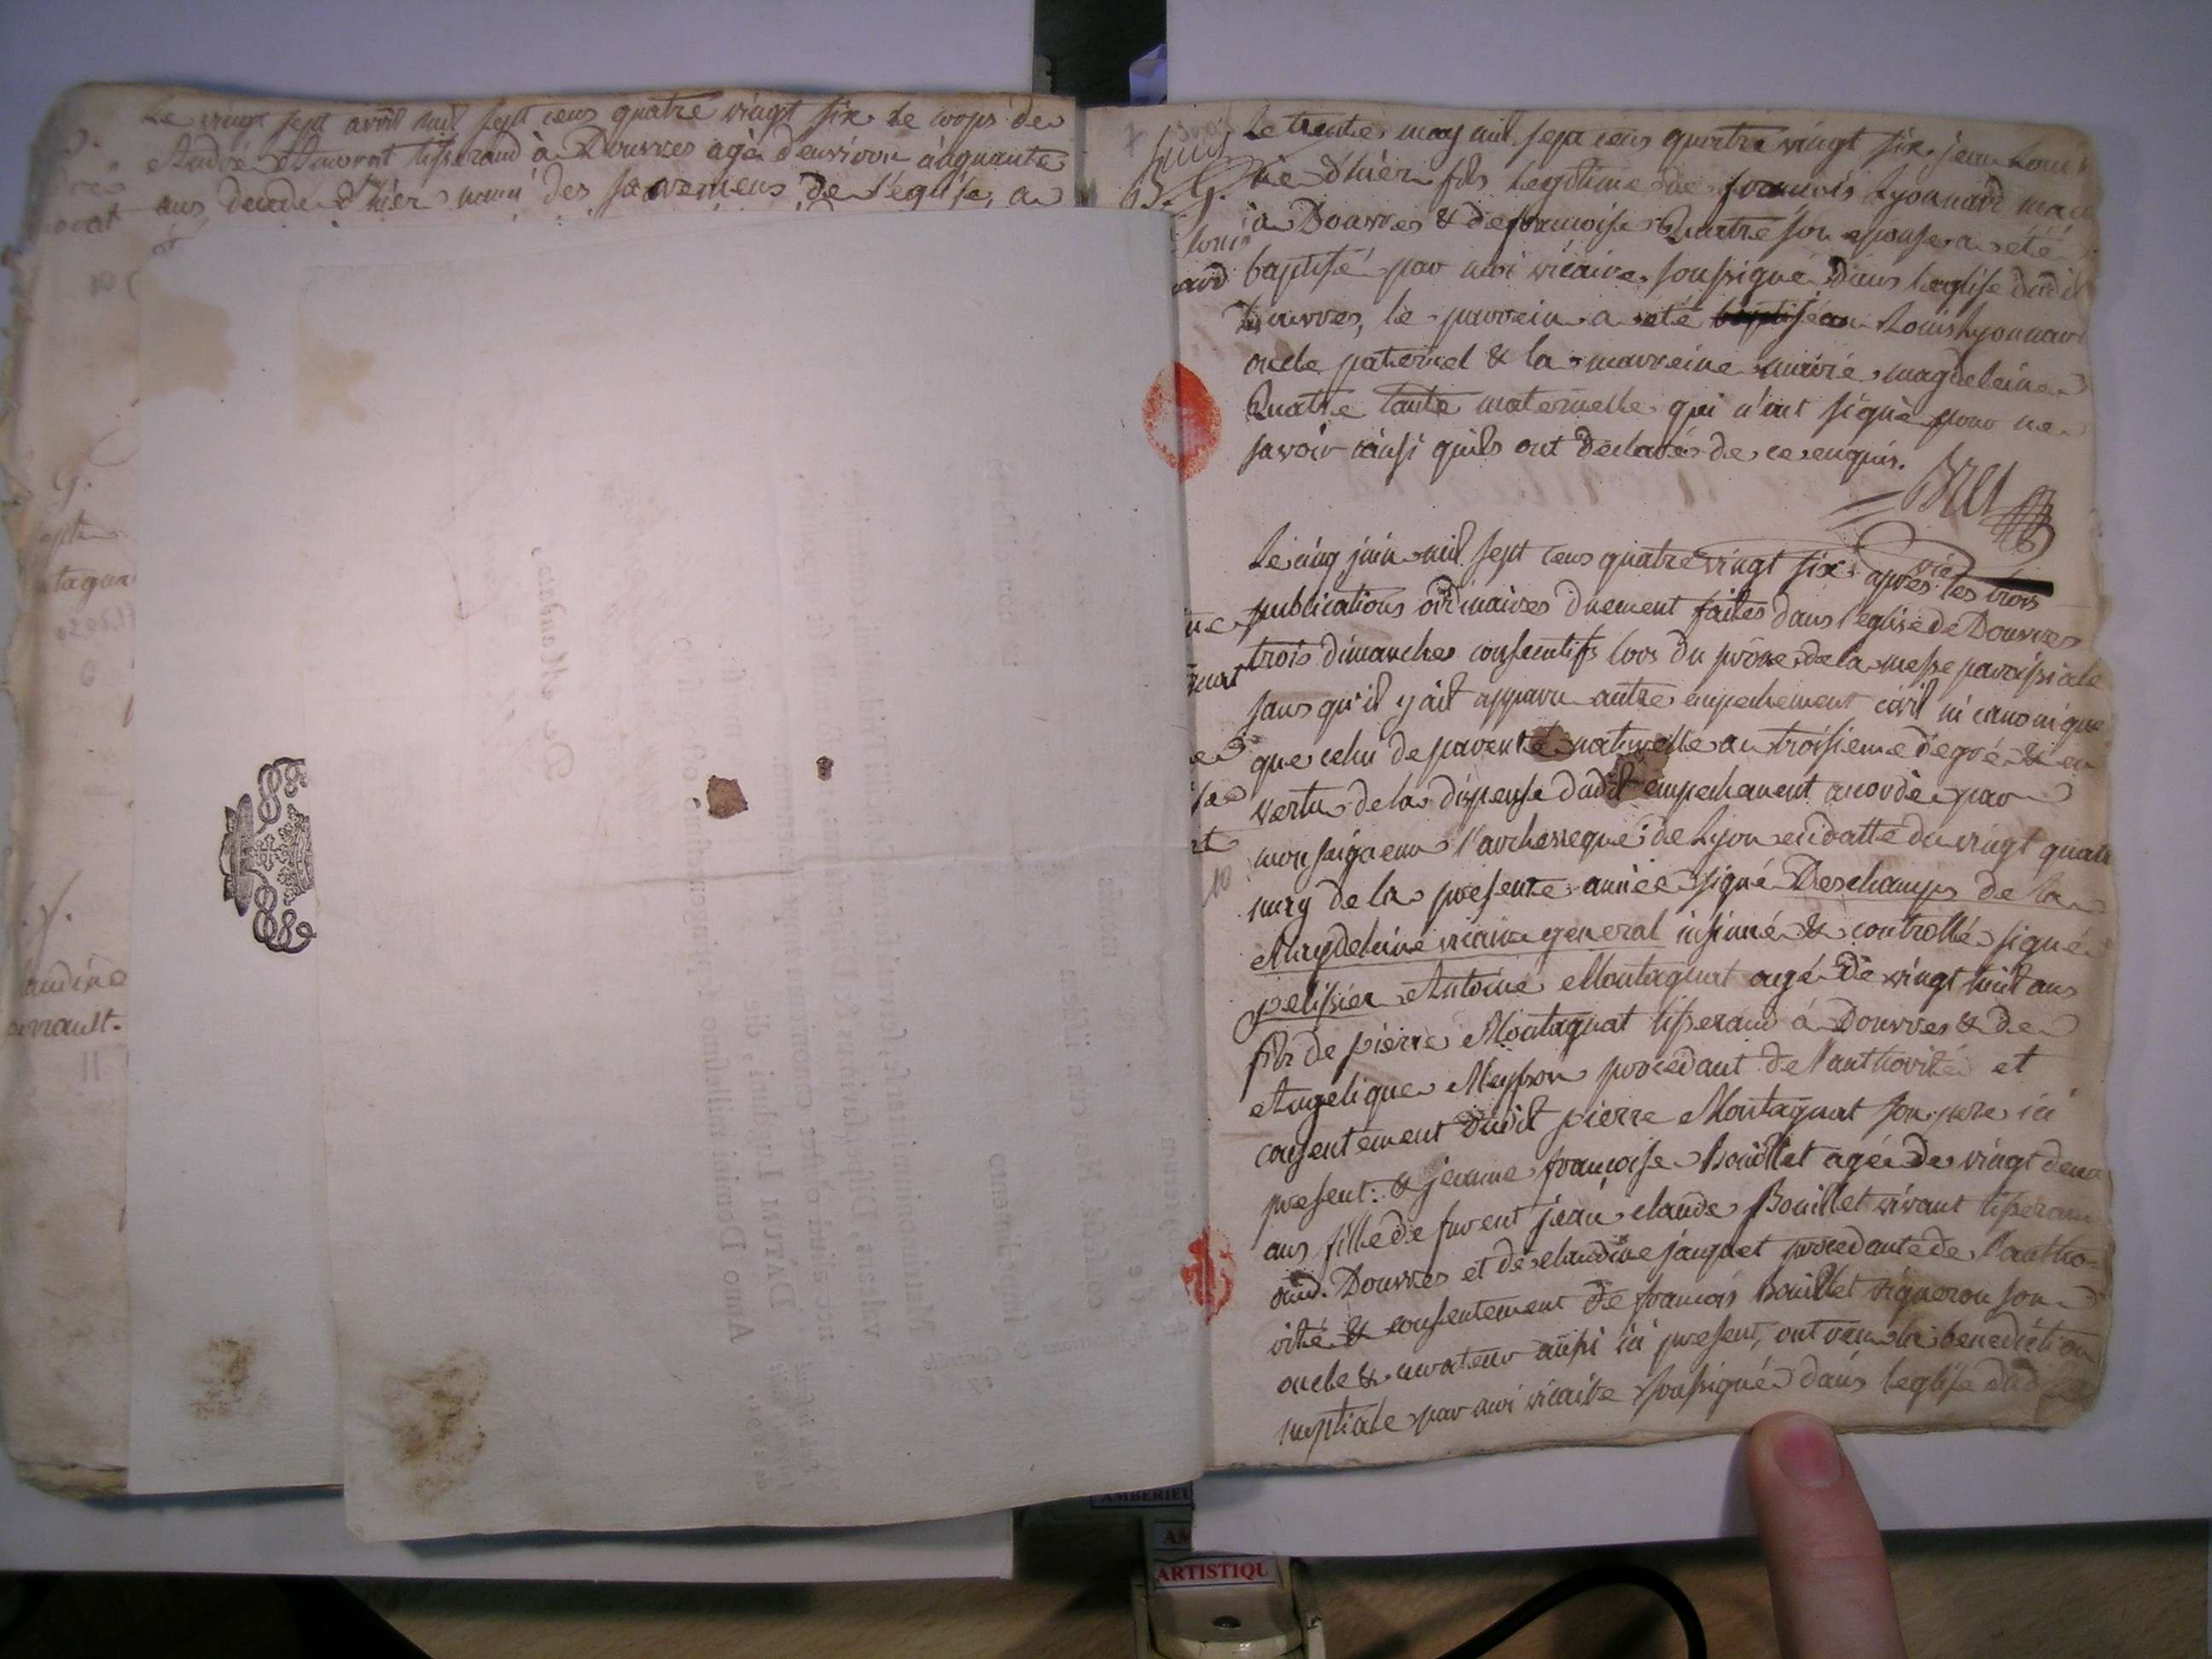 Le vingt sept avril mil sept cens quatre vingt six le corps de
André Amorat tisserand à Douvres agé d'environ cinquante
ans decedé d'hier muni des sacremens de l'eglise, a
été
G.
tagna
laudine
perrault.
Le trente may mil sept cens quatre vingt six jean Louis
né d'hier fils legitime de francois Lyonnard
à Douvres & de francoise Quatre son epouse a été
Louis
baptisé par moi vicaire soussigné dans leglise dudit
Douvres, le parrein a eté jean Louis Lyonnard
oncle paternel & la marreine marie magdeleine
Quatre tante maternelle qui n'ont signé pour ne
savoir ainsi quils ont declarés de ce enquis.
Bret
vic
Le cinq juin mil sept cens quatre vingt six après les trois
publications ordinaires duement faites dans l'eglise de Douvres
trois dimanches consecutifs lors du prône de la messe paroissiale
sans qu'il y ait apparu autre empechement civil ni canonique
que celui de parenté naturelle au troisieme degré & en
vertu de la dispense dudit empechement accordée par
monseigneur l'archeveque de Lyon en datte du vingt quatre
may de la presente année signé Deschamps de la
Magdeleine vicaire general insinué & controllé signé
pelissier Antoine Montagnat agé de vingt huit ans
fils de pierre Montagnat tisserand à Douvres & de
Angelique Meysson procedant de l'authorité et
consentement dudit pierre Montagnat son pere ici
present: & jeanne francoise Bouillet agée de vingt deux
ans fille de furent jean claude Bouillet vivant tisserand
aud. Douvres et de claudine jaquet procedante de l'autho-
rité & consentement de francois Bouillet vigneron son
oncle & curateur aussi ici present, ont recu la benediction
nuptiale par moi vicaire soussigné dans leglise dud
DATUM Lugduni, die
Anno Domini millesimo septingentesimo
AMBERIEU
AM
ARTISTIQU